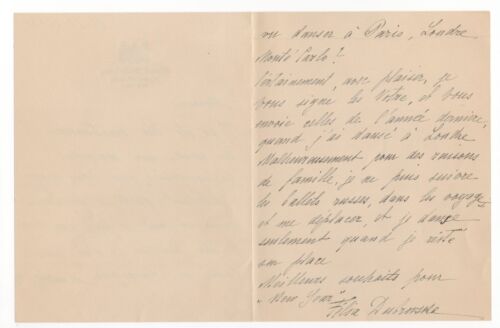 vu danser à Paris, Londre
Monté Carlo?
Certainement, avec plaisir, je
vous signe les Votre, et vous
envoie celles de l'année dernière,
quand j'ai dansé à Londre
Malheureusement pour des raisons
de famille, je ne puis suivre
les ballets russes, dans les voyages
et me déplacer, et je danse
seulement quand je reste
sur place
Meilleurs souhaits pour
"New Year"
Félia Dubrovska